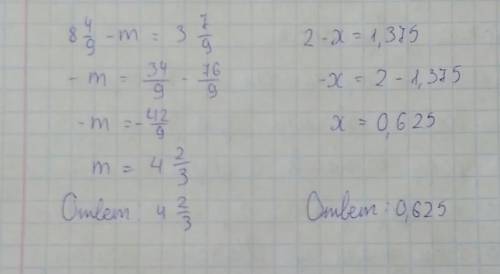 8 4/9 - m = 3 7/9
- m = 34/9 - 76/9
- m = - 42/9
m = 4 2/3
Ответ: 4 2/3
2 - x = 1,375
-x = 2 - 1,375
x = 0,625
Ответ: 0,625